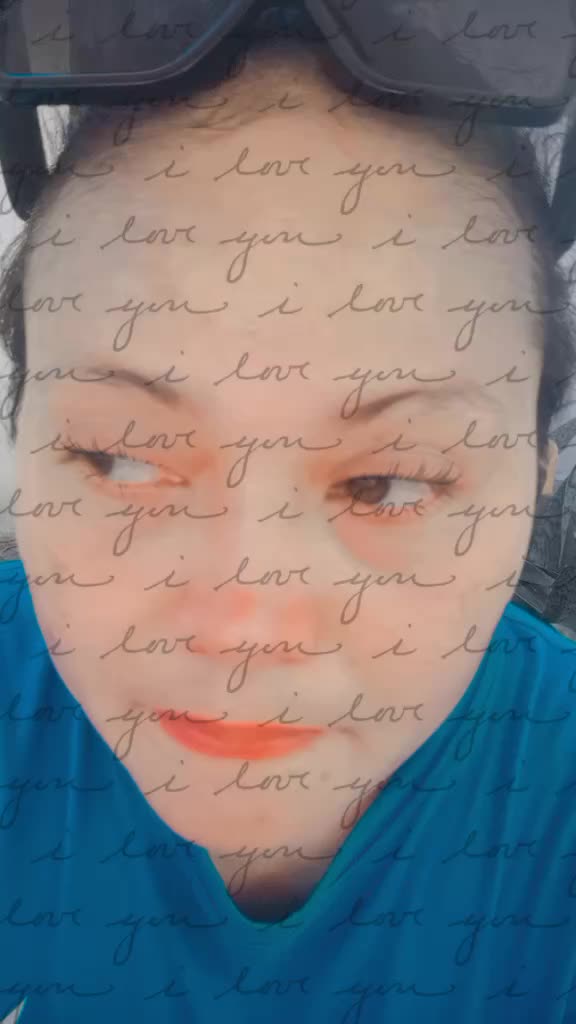 i love you i love
you i love you
you i love you i
i love you i love
love you i love you
you i love you i
i love you i love
love you i love you
you i love you i
i love you i love
love you i love you
you i love you i
i love you i love
love you i love you
you i love you i